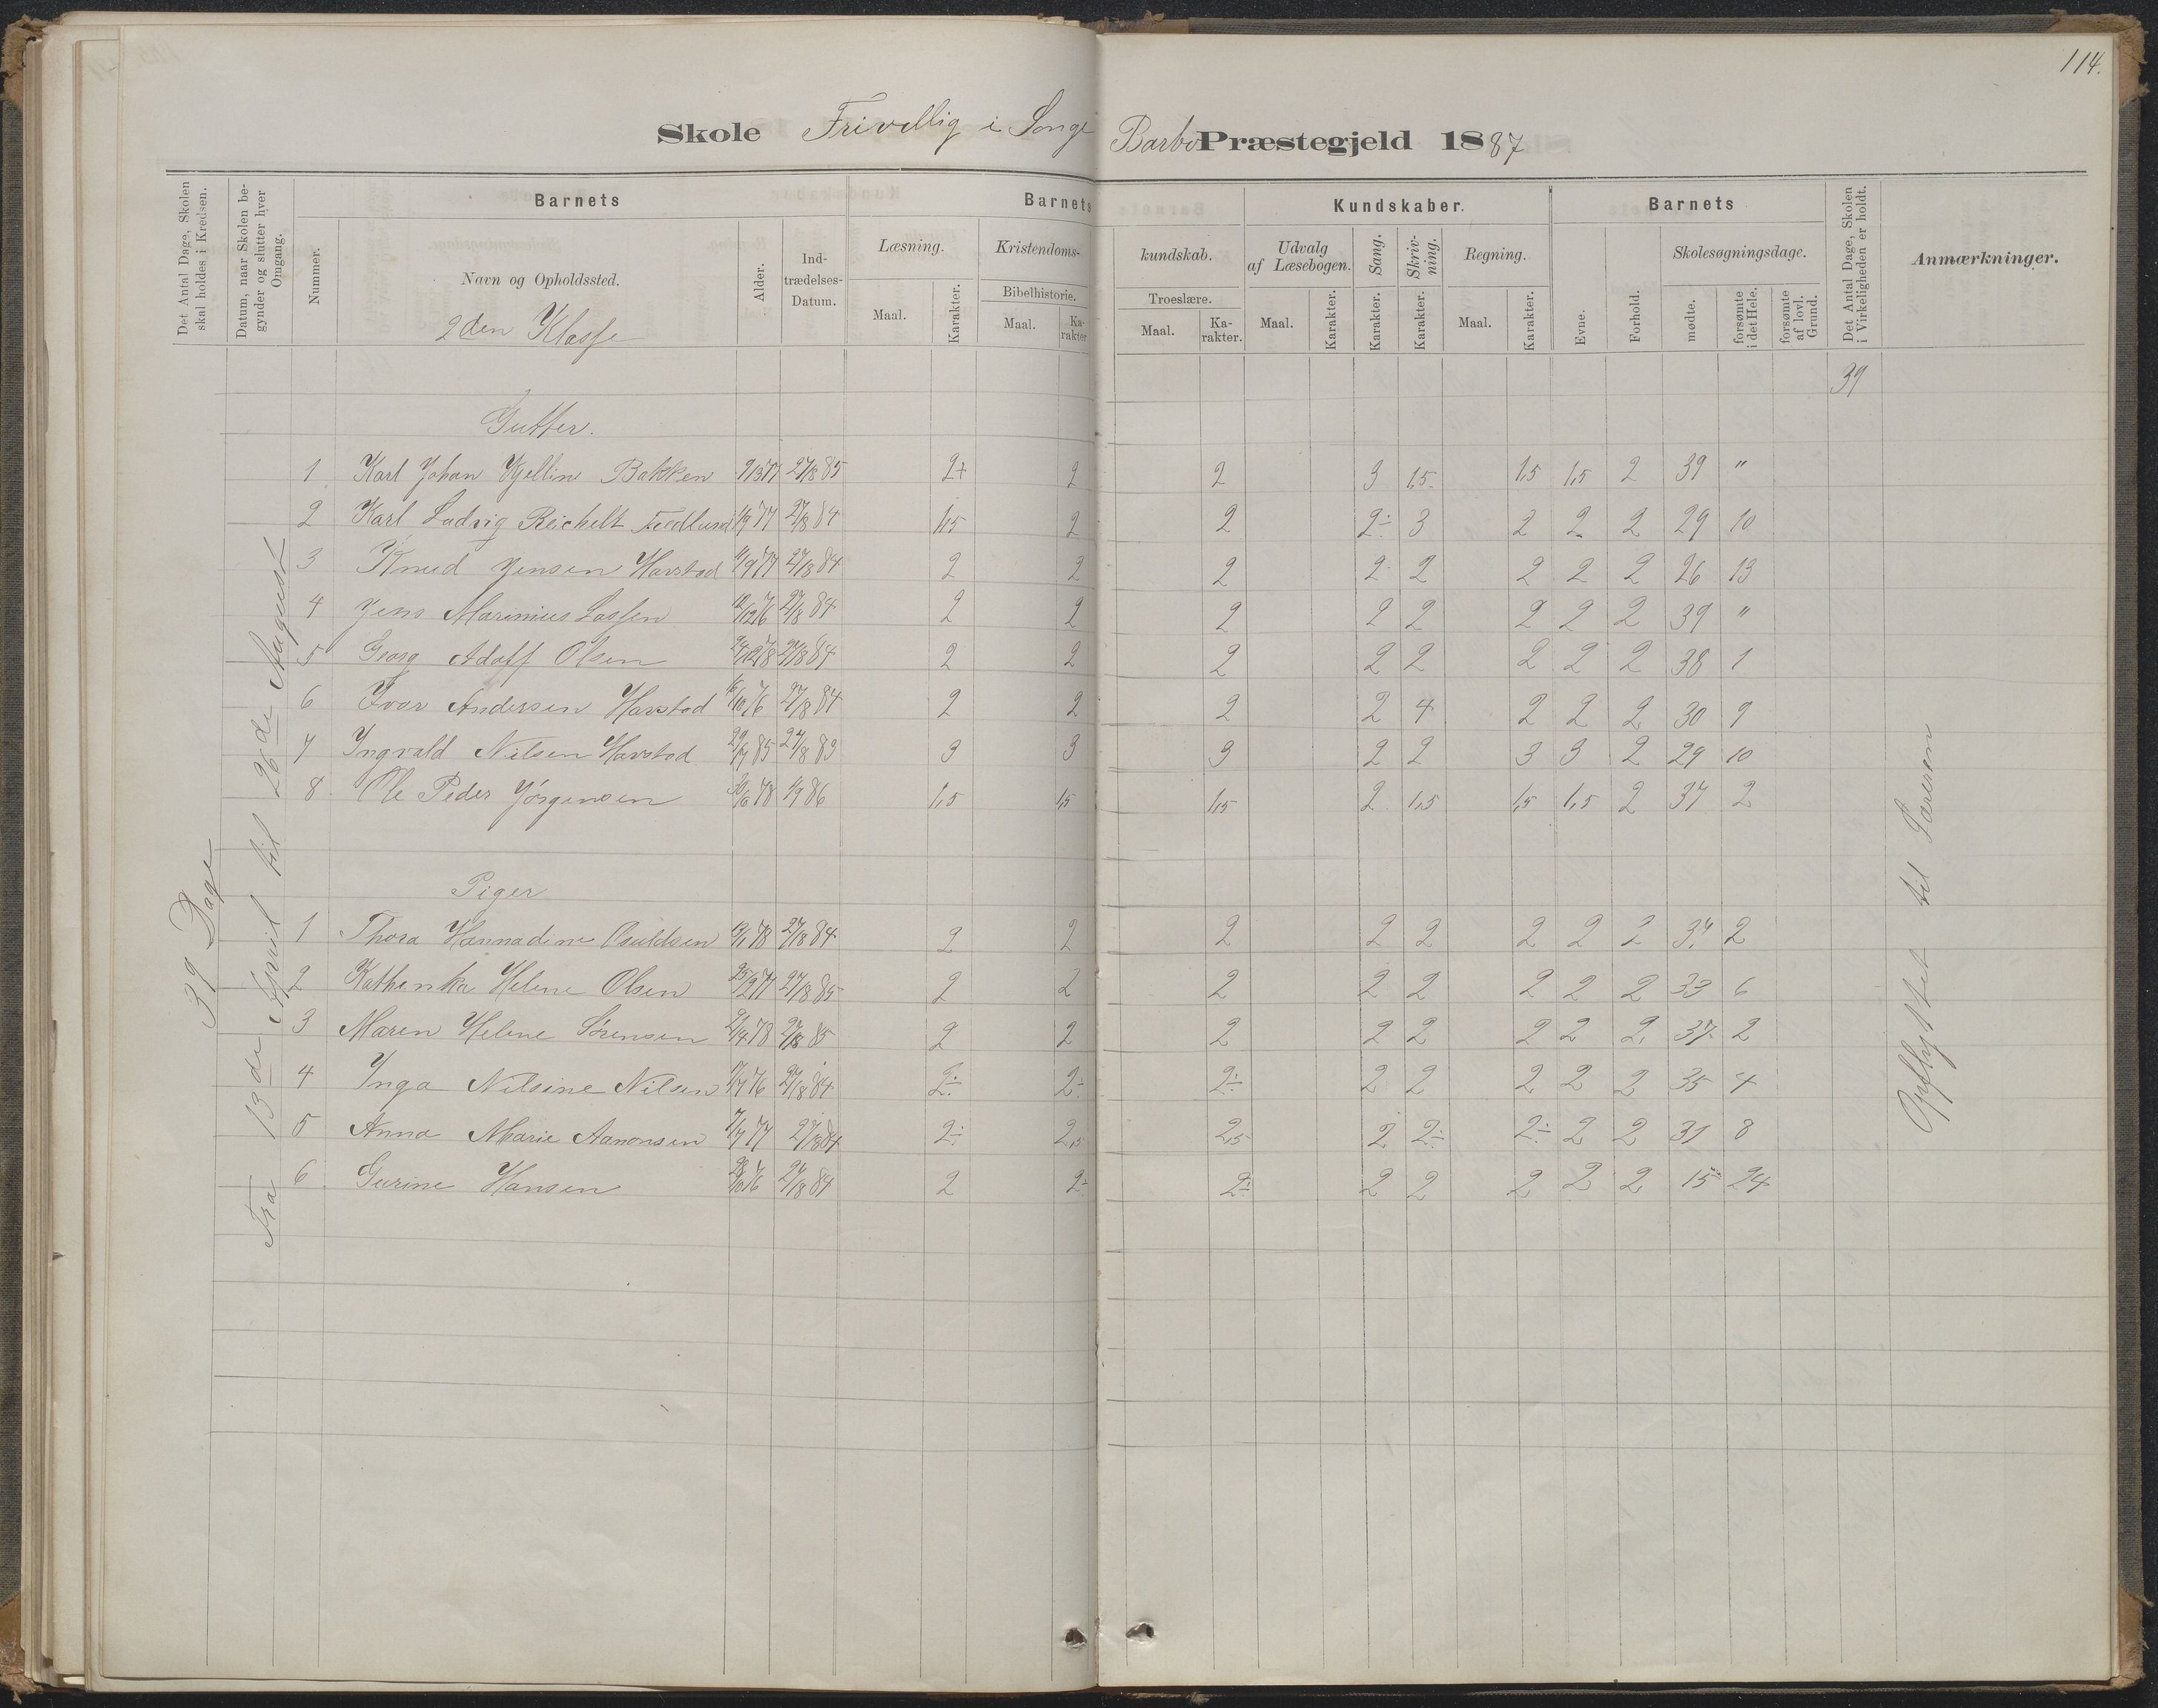 114.
Skole Frivillig i Songe Barbo Præstegjeld 1887
Det Antal Dage, Skolen skal holdes i Kredsen.
Datum, naar Skolen begynder og slutter hver Omgang.
Barnets
Nummer.
Navn og Opholdssted.
2den Klasse
Alder.
Indtrædelses-Datum.
Barnets Kundskaber.
Læsning.
Maal. Karakter.
Kristendomskundskab.
Bibelhistorie. Troeslære.
Maal. Karakter. Maal. Karakter.
Udvalg af Læsebogen.
Maal. Karakter.
Sang. Karakter.
Skrivning. Karakter.
Regning.
Maal. Karakter.
Barnets
Evne. Forhold.
Skolesøgningsdage.
mødte. forsømte i det Hele. forsømte af lovl. Grund.
Det Antal Dage, Skolen i Virkeligheden er holdt.
Anmærkninger.
39
39 Dage
Fra 13de April til 26de August
Gutter.
1 Karl Johan Kjellin Bakken 27/8 85 2+ 2 2 3 1,5 1,5 1,5 2 39 "
2 Karl Ludvig Reichelt 1/9 77 27/8 84 1,5 2 2 2÷ 3 2 2 2 29 10
3 Knud Jensen Havstad 27/8 84 2 2 2 2 2 2 2 2 26 13
4 Jens Marinius Lassen 12/12 76 27/8 84 2 2 2 2 2 2 2 2 39 "
5 Georg Adolf Olsen 27/8 84 2 2 2 2 2 2 2 2 38 1
6 Ivar Andersen Havstad 27/8 84 2 2 2 2 4 2 2 2 30 9
7 Ingvald Nilsen Havstad 27/8 83 3 3 3 2 2 3 3 2 29 10
8 Ole Peder Jörgensen 1/9 86 1,5 1,5 1,5 2 1,5 1,5 1,5 2 37 2
Piger
1 Thora Hannadine Osuldsen 27/8 84 2 2 2 2 2 2 2 2 37 2
2 Kathinka Helene Olsen 27/8 85 2 2 2 2 2 2 2 2 33 6
3 Maren Helene Sörensen 27/8 85 2 2 2 2 2 2 2 2 37 2
4 Inga Nilsine Nilsen 27/8 84 2÷ 2÷ 2÷ 2 2 2 2 2 35 4
5 Anna Marie Aanonsen 7/7 77 27/8 84 2÷ 2,5 2,5 2 2÷ 2÷ 2 2 31 8
6 Gurine Hansen 27/8 84 2 2÷ 2÷ 2 2 2 2 2 15 24
Opflyttet til